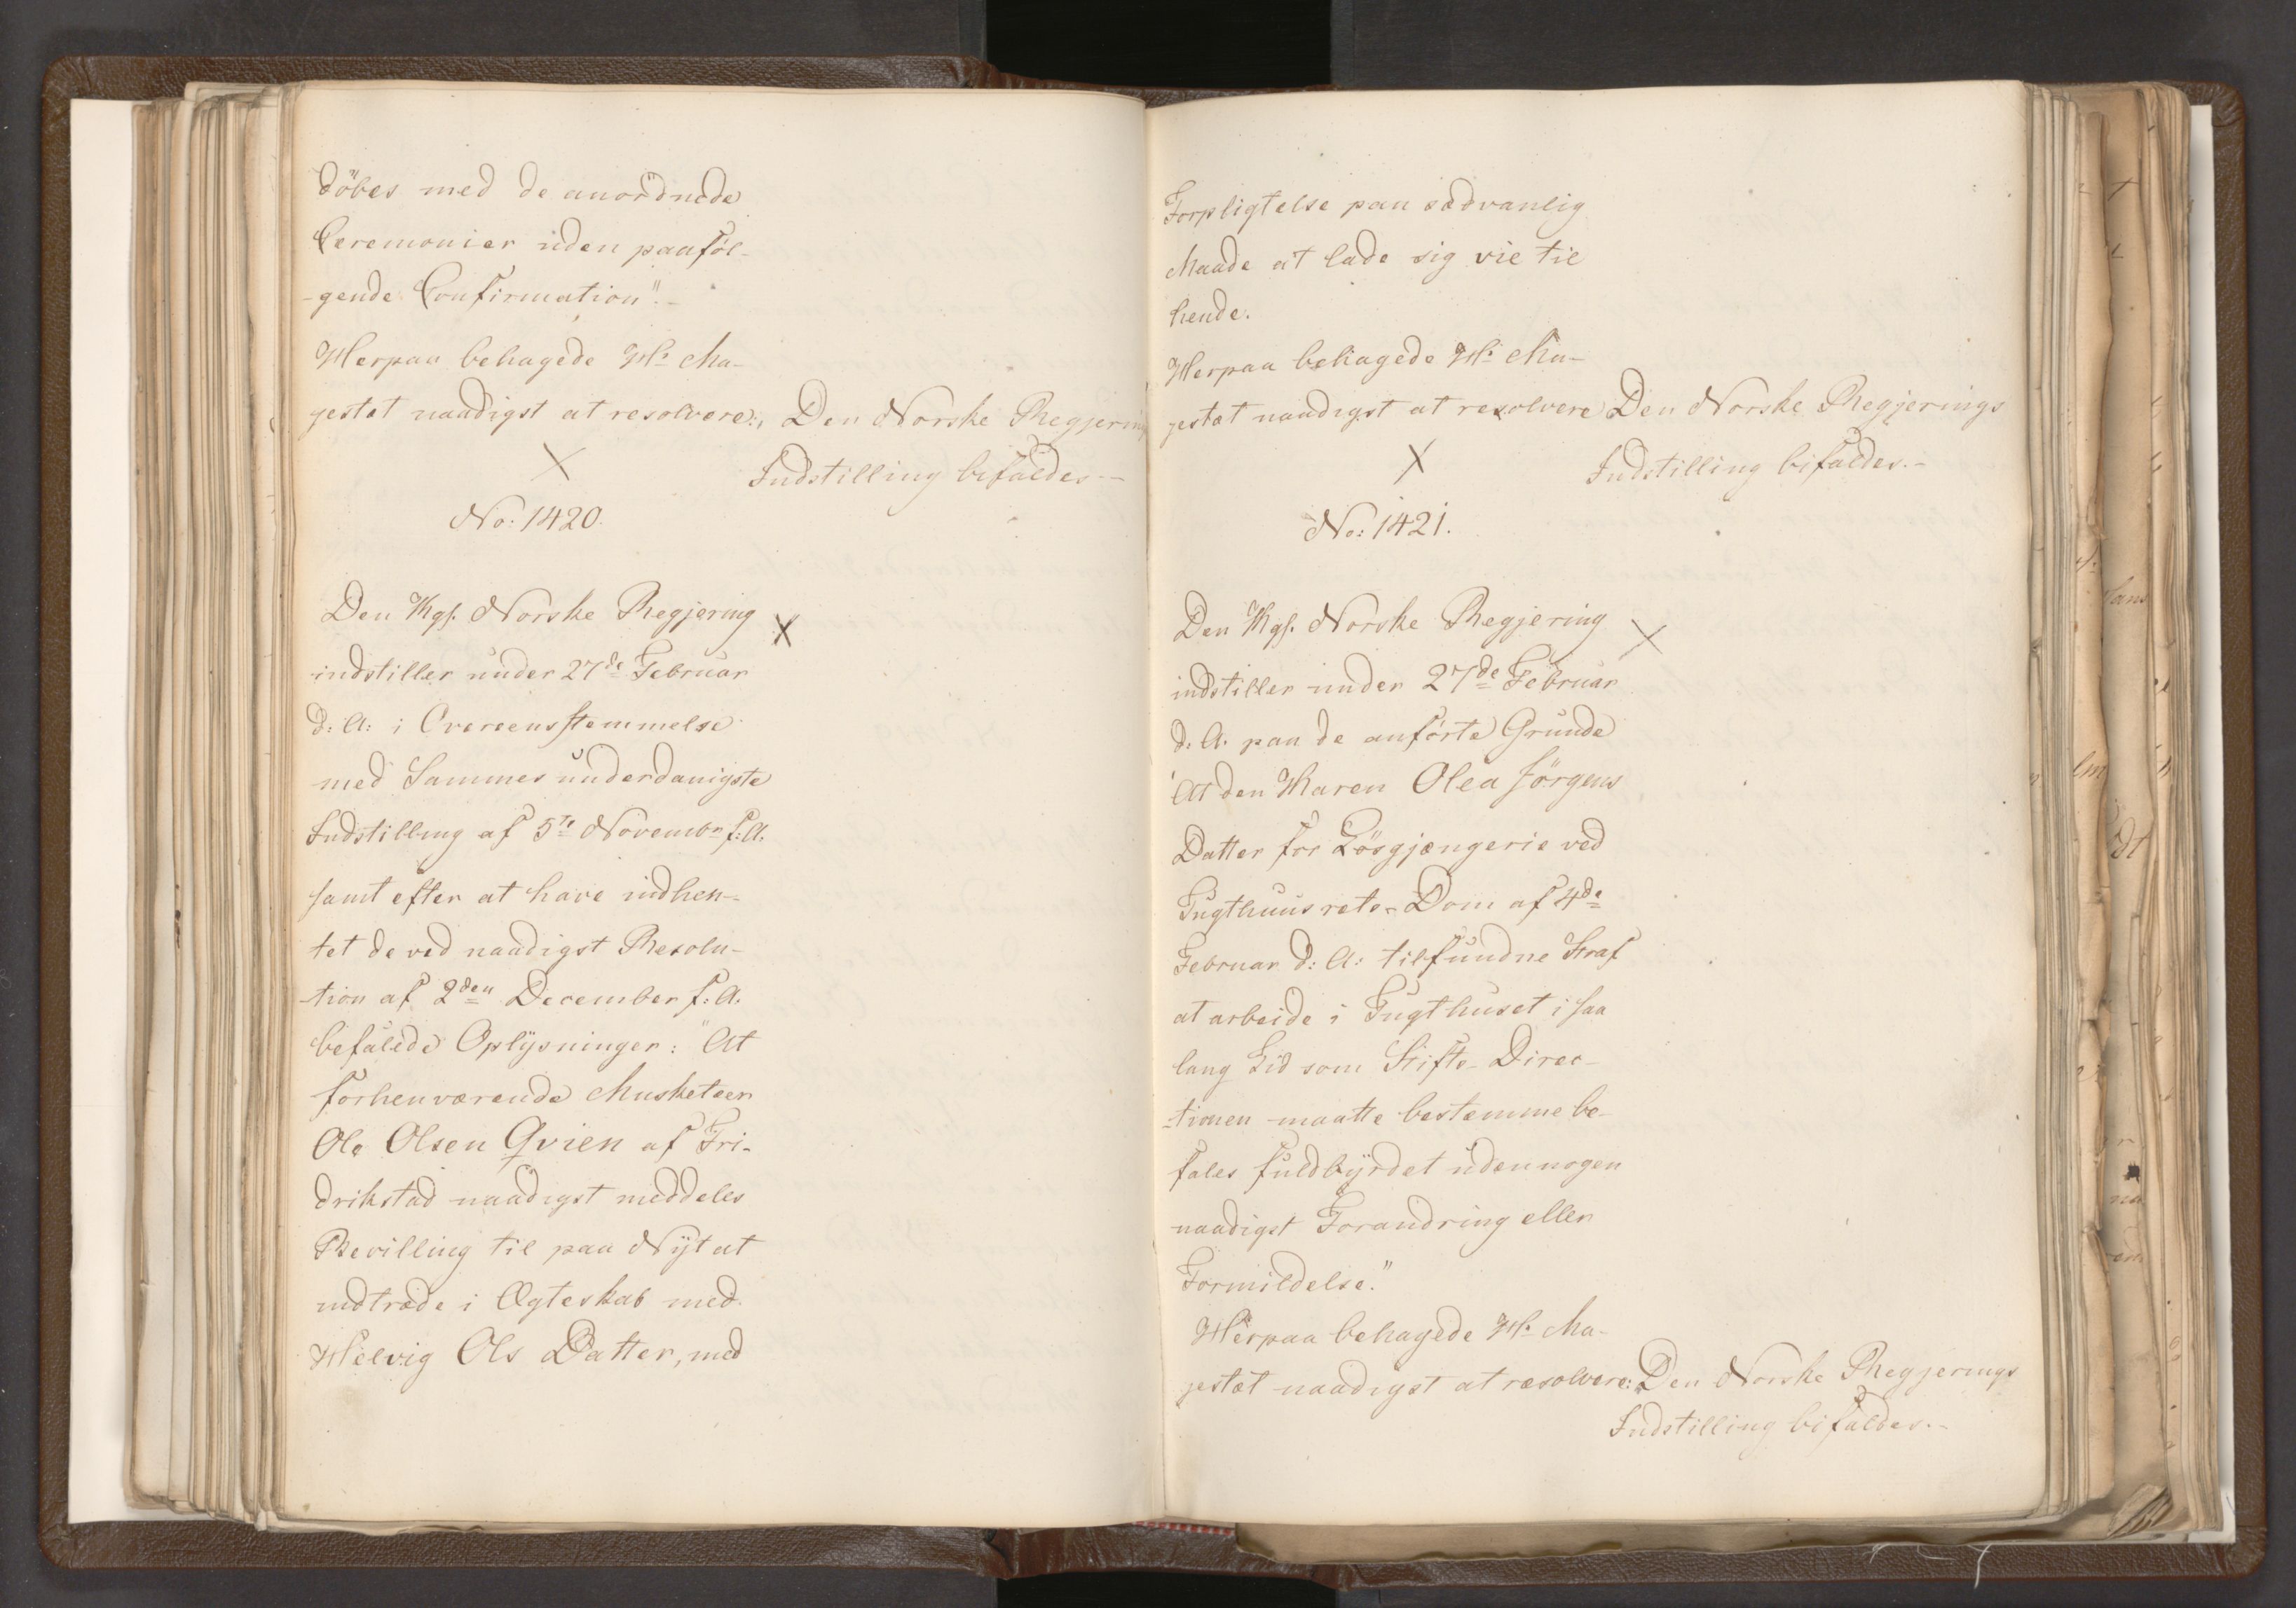 döbes med de anordnede
Ceremonier uden paaføl-
-gende Confirmation".-
Herpaa behagede H: Ma-
jestæt naadigst at resolvere:, Den Norske Regjering
Indstilling bifaldes.-
X
No: 1420.
Den Kgl. Norske Regjering X
indstiller under 27de Februar
d: A: i Overeensstemmelse
med Sammes underdanigste
Indstilling af 5te Novembr f: A.
samt efter at have indhen-
tet de ved naadigst Resolu-
tion af 2den December f: A.
befalede Oplysninger: "At
forhenværende Musketeer
Ole Olsen Qvien af Fri-
drikstad naadigst meddeles
Bevilling til paa Nÿt at
indtræde i Ægteskab med
Helvig Ols Datter, med
Forpligtelse paa sædvanlig
Maade at lade sig vie til
hende.
Herpaa behagede H: Ma-
jestæt naadigst at resolvere Den Norske Regjerings
Indstilling bifaldes.-
X
No: 1421.
Den Kgl. Norske Regjering X
indstiller under 27de Februar
d. A. paa de anførte Grunde
'At den Karen Olea Jörgens
Datter for Lösgjængerie ved
Tugthuusrets-Dom af 4de
Februar d: A: tilfundne Straf
at arbeide i Tugthuset i saa
lang Tid som Stifts-Direc-
-tionen maatte bestemme be-
fales fuldbÿrdet uden nogen
naadigst Forandring eller
Formildelse."
Herpaa behagede H: Ma-
jestæt naadigst at resolvere: "Den Norske Regjerings
Indstilling bifaldes.-